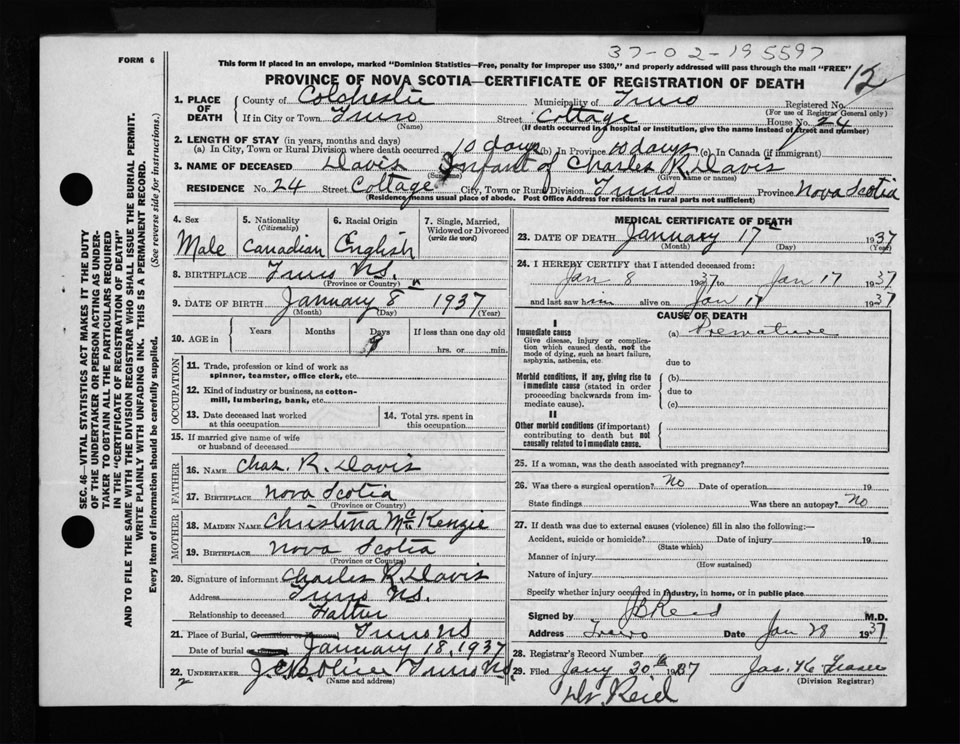 37-02-195597
FORM 6
This form if placed in an envelope, marked "Dominion Statistics—Free, penalty for improper use $300," and properly addressed will pass through the mail "FREE"
PROVINCE OF NOVA SCOTIA—CERTIFICATE OF REGISTRATION OF DEATH
12
1. PLACE OF DEATH
County of Colchester Municipality of Truro Registered No.
(For use of Registrar General only)
If in City or Town Truro Street Cottage House No. 24
(Name) (If death occurred in a hospital or institution, give the name instead of street and number)
2. LENGTH OF STAY (in years, months and days)
(a) In City, Town or Rural Division where death occurred 10 days (b) In Province 10 days (c) In Canada (if immigrant)
3. NAME OF DECEASED Davis Infant of Charles R. Davis
(Surname) (Given name or names)
RESIDENCE No. 24 Street Cottage City, Town or Rural Division Truro Province Nova Scotia
(Residence means usual place of abode. Post Office Address for residents in rural parts not sufficient)
4. Sex
Male
5. Nationality
(Citizenship)
Canadian
6. Racial Origin
English
7. Single, Married, Widowed or Divorced
(write the word)
8. BIRTHPLACE Truro N.S.
(Province or Country)
9. DATE OF BIRTH January 8th 1937
(Month) (Day) (Year)
10. AGE in
Years
Months
Days
9
If less than one day old
hrs. or min.
OCCUPATION
11. Trade, profession or kind of work as
spinner, teamster, office clerk, etc.
12. Kind of industry or business, as cotton-
mill, lumbering, bank, etc.
13. Date deceased last worked
at this occupation
14. Total yrs. spent in
this occupation
15. If married give name of wife
or husband of deceased
FATHER
16. NAME Chas. R. Davis
17. BIRTHPLACE Nova Scotia
(Province or Country)
MOTHER
18. MAIDEN NAME Christina McKenzie
19. BIRTHPLACE Nova Scotia
(Province or Country)
20. Signature of informant Charles R. Davis
Address Truro N.S.
Relationship to deceased Father
21. Place of Burial, Cremation or Removal Truro NS
Date of burial January 18, 1937
22. UNDERTAKER Truro NS.
(Name and address)
2
MEDICAL CERTIFICATE OF DEATH
23. DATE OF DEATH January 17th 1937
(Month) (Day) (Year)
24. I HEREBY CERTIFY that I attended deceased from
Jan 8 1937 to Jan 17 1937
and last saw him alive on Jan 17 1937
CAUSE OF DEATH
I
Immediate cause
Give disease, injury or complica-
tion which caused death, not the
mode of dying, such as heart failure,
asphyxia, asthenia, etc
(a) Premature
due to
Morbid conditions, if any, giving rise to
immediate cause (stated in order
proceeding backwards from im-
mediate cause).
(b)
due to
(c)
II
Other morbid conditions (if important)
contributing to death but not
causally related to immediate cause.
25. If a woman, was the death associated with pregnancy?
26. Was there a surgical operation? No Date of operation 19
State findings Was there an autopsy? No
27. If death was due to external causes (violence) fill in also the following:—
Accident, suicide or homicide? Date of injury 19
(State which)
Manner of injury
(How sustained)
Nature of injury
Specify whether injury occurred in industry, in home, or in public place
Signed by JB Reid M.D.
Address Truro Date Jan 28 1937
28. Registrar's Record Number
29. Filed Jany 20th 1937 Jas. H. Fraser
(Division Registrar)
Dr. Reid
SEC. 46—VITAL STATISTICS ACT MAKES IT THE DUTY
OF THE UNDERTAKER OR PERSON ACTING AS UNDER-
TAKER TO OBTAIN ALL THE PARTICULARS REQUIRED
IN THE "CERTIFICATE OF REGISTRATION OF DEATH"
AND TO FILE THE SAME WITH THE DIVISION REGISTRAR WHO SHALL ISSUE THE BURIAL PERMIT.
WRITE PLAINLY WITH UNFADING INK. THIS IS A PERMANENT RECORD.
Every item of information should be carefully supplied. (See reverse side for instructions.)